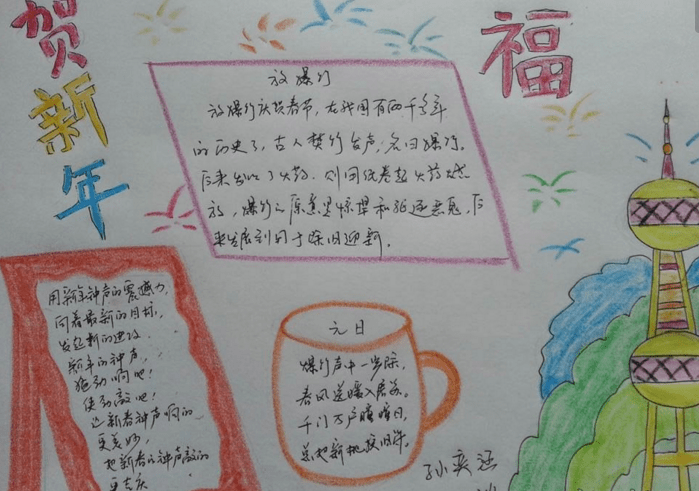 贺新年
福
放爆竹
放爆竹庆贺春节，在我国有两千多年
的历史了，古人焚竹发声，名曰爆竹。
后来出现了火药，则用纸卷起火药燃
放，爆竹之原意是惊惮和驱逐恶鬼，后
来发展到用于除旧迎新。
用新年钟声的震撼力，
向着最新的目标，
发起新的进攻
新年的钟声，
拖动响吧！
使劲敲吧！
让新春钟声响的
更美妙，
把新春的钟声敲的
元日
爆竹声中一步除，
春风送暖入屠苏。
千门万户曈曈日，
总把新桃换旧符。
孙奕